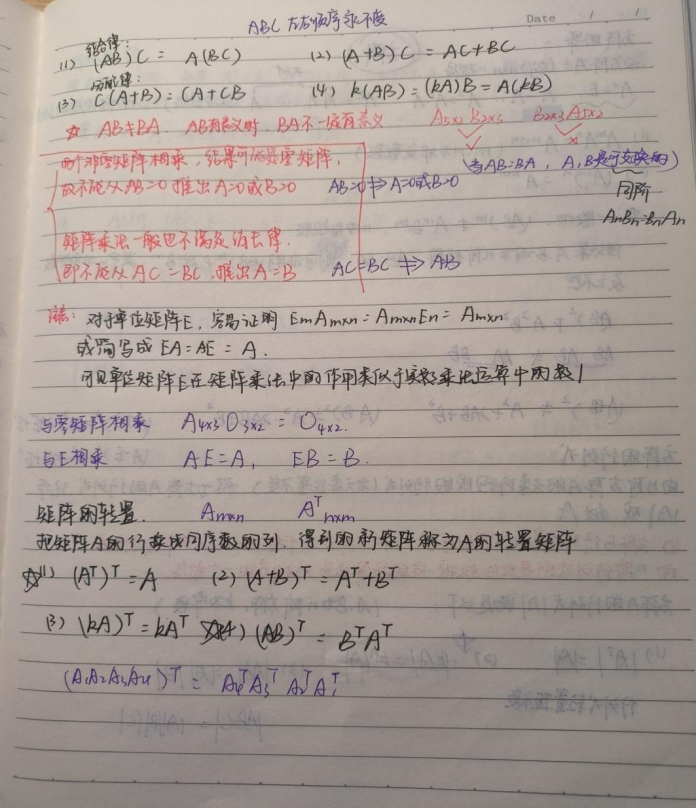 ABC左右顺序永不变
Date / /
结合律:
(1) (AB)C = A(BC) (2) (A+B)C = AC+BC
分配律:
(3) C(A+B) = CA+CB (4) k(AB) = (kA)B = A(kB)
☆ AB≠BA. AB有意义时, BA不一定有意义 A5x2 B2x3 B2x3 A5x2
√ ×
两个非零矩阵相乘, 结果可能是零矩阵, 当AB=BA, A,B是可交换的
故不能从AB=0推出A=0或B=0 AB=0 ⇏ A=0或B=0 同阶
AnBn=BnAn
矩阵乘法一般也不满足消去律.
即不能从AC=BC, 推出A=B AC=BC ⇏ A=B
对于单位矩阵E, 容易证明 EmAmxn = AmxnEn = Amxn
或简写成 EA=AE = A.
可见单位矩阵E在矩阵乘法中的作用类似于实数乘法运算中的数1
与零矩阵相乘 A4x3O3x2 = O4x2.
与E相乘 AE=A, EB=B.
矩阵的转置. Amxn Aᵀnxm
把矩阵A的行换成同序数的列. 得到的新矩阵称为A的转置矩阵
☆(1) (Aᵀ)ᵀ = A (2) (A+B)ᵀ = Aᵀ+Bᵀ
(3) (kA)ᵀ = kAᵀ ☆(4) (AB)ᵀ = BᵀAᵀ
(A1A2A3A4)ᵀ = A4ᵀA3ᵀA2ᵀA1ᵀ